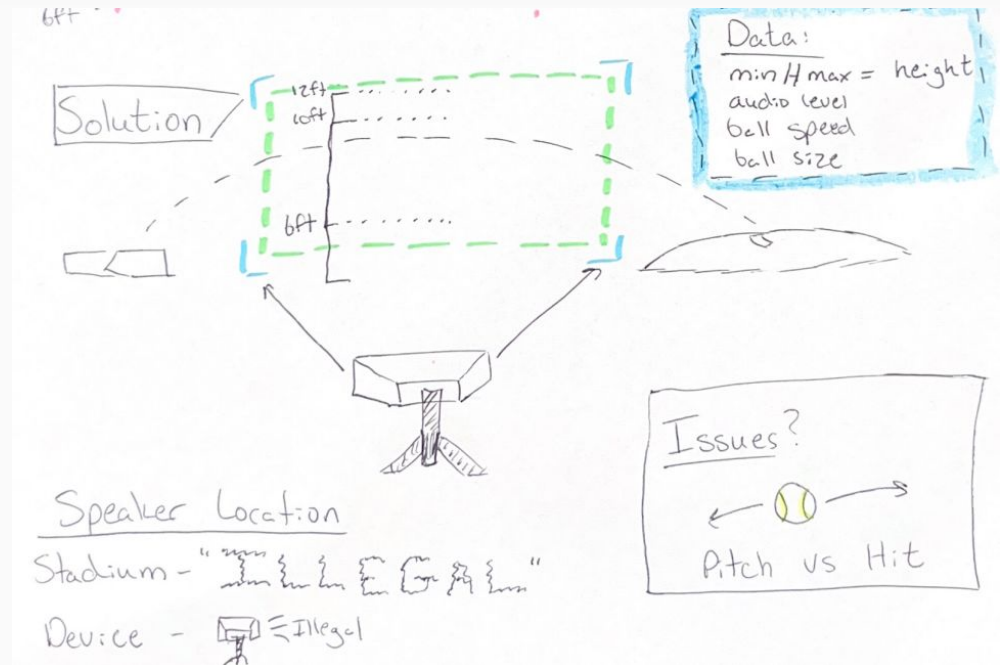 6ft
Solution
12ft
10ft
6ft
Data:
min/max = height
audio level
ball speed
ball size
Issues?
Pitch vs Hit
Speaker Location
Stadium - "ILLEGAL"
Device - Illegal